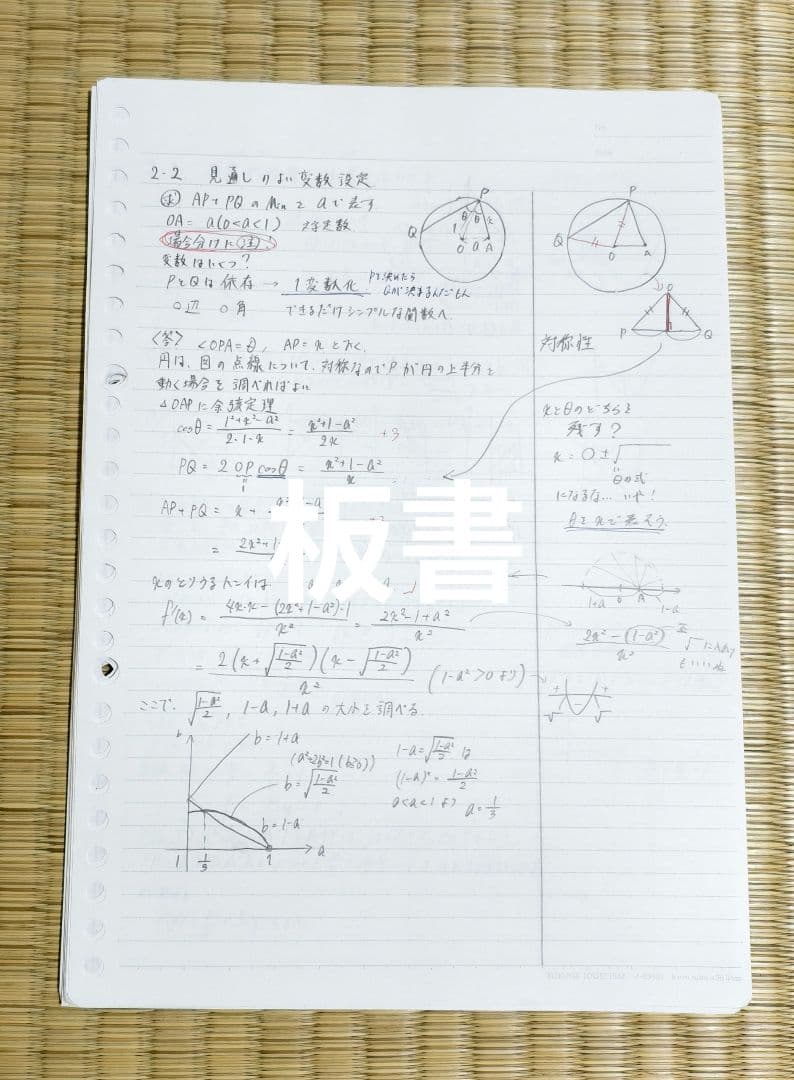 2-2 見通しのよい変数設定
求 AP+PQのMinをaで表す
OA=a(0<a<1)
場合分けに注!
変数はいくつ?
PとQは依存→1変数化
Pを決めたら
Qが決まるんだもん
○辺 ○角 できるだけシンプルな関数へ
P
Q
O a A
1 θ θ x
<答> ∠OPA=θ, AP=xとおく。
円は、図の点線について、対称なのでPが円の上半分を
動く場合を調べればよい
△OAPに余弦定理
cosθ=(1²+x²-a²)/(2・1・x)=(x²+1-a²)/(2x)
PQ=2OPcosθ=(x²+1-a²)/x
1
AP+PQ=x+
板書
xのとりうる
f'(x)=(4x・x-(2x²+1-a²)・1)/x²=(2x²-1+a²)/x²
=2(x+√((1-a²)/2))(x-√((1-a²)/2))/x² (1-a²>0より)
ここで、√((1-a²)/2), 1-a, 1+aの大小を調べる。
b
b=1+a
(a²+2b²=1(b≧0))
b=√((1-a²)/2)
b=1-a
a
1/3
1
1-a=√((1-a²)/2)は
(1-a)²=(1-a²)/2
a=1/3
P
Q
O A
P Q
対称性
xとθのどちらを
残す?
x=○±√
θの式
になるな…いや!
θをxで表そう。
1+a O A 1-a
(2x²-(1-a²))/x²
正
√に入れて
もいいね
+ - +
√ √